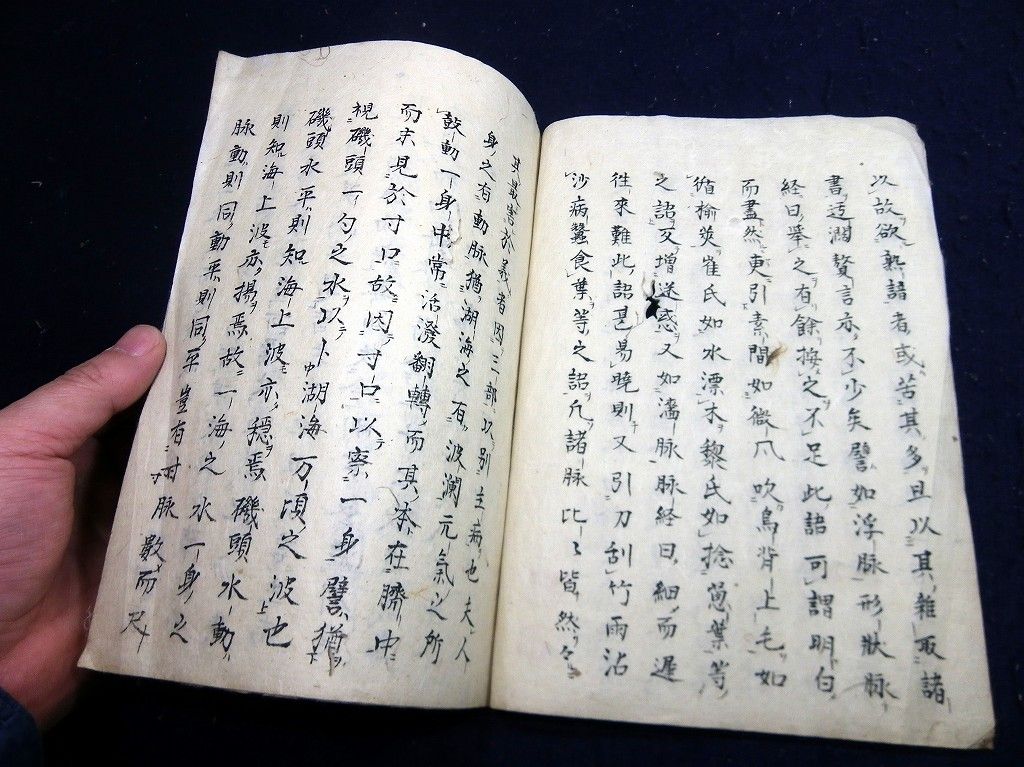 以故欲熟語者或苦其多且以其雜取諸
書迂濶贅言亦不少矣譬如浮脉形狀脉
經曰舉之有餘按之不足此語可謂明白
而盡然更引素問如微風吹鳥背上毛如
循楡莢崔氏如水漂木黎氏如捻葱葉等
之語又增迷惑又如濇脉脉經曰細而遲
往來難此語甚易曉則又引刀刮竹雨沾
沙病蠶食葉等之語凢諸脉比〻皆然〻
其最害於義者因三部以別主病也夫人
身之有動脉猶湖海之有波瀾元氣之所
鼓動一身中常活潑翻轉而其本在臍中
而末見於寸口故因寸口以察一身譬猶
視磯頭一勺之水以卜湖海万頃之波也
磯頭水平則知海上波亦穩焉磯頭水動
則知海上波亦揚焉故一海之水一身之
脉動則同動平則同平豈有寸脉數而尺